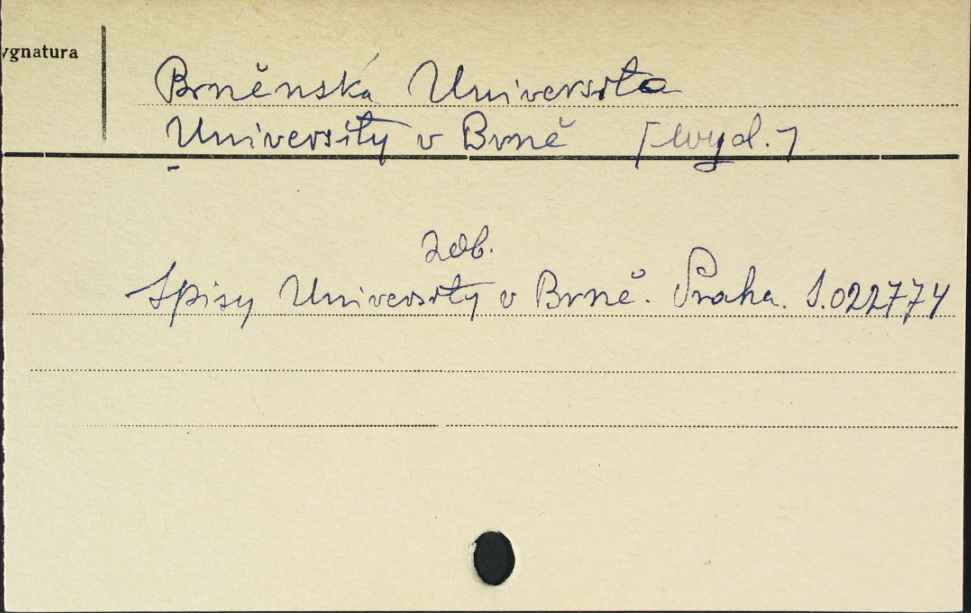 ygnatura
Brněnská Universita
University v Brně [wyd.]
zob.
Spisy University v Brně. Praha. S.022774